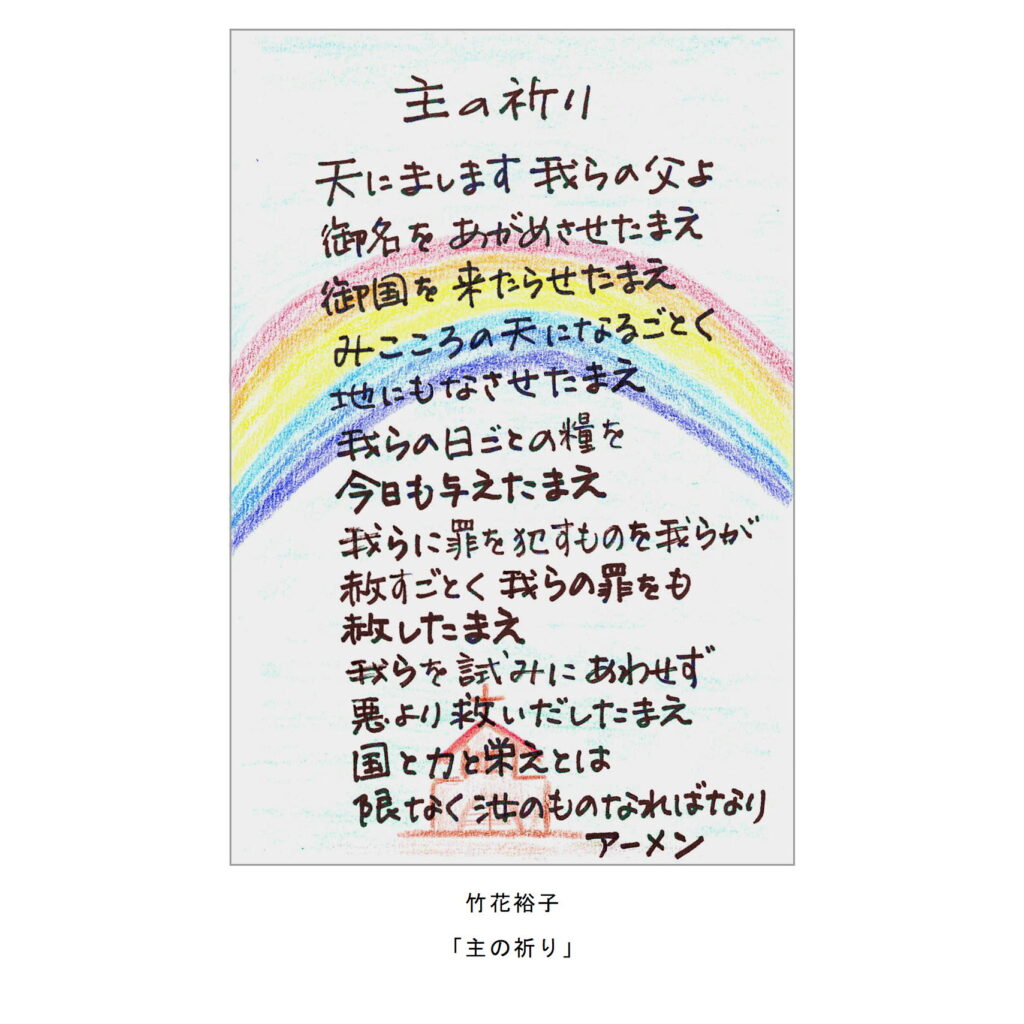 主の祈り
天にまします 我らの父よ
御名を あがめさせたまえ
御国を 来たらせたまえ
みこころの天になるごとく
地にもなさせたまえ
我らの日ごとの糧を
今日も与えたまえ
我らに罪を犯すものを我らが
赦すごとく 我らの罪をも
赦したまえ
我らを試みに あわせず
悪より救いだしたまえ
国と力と栄えとは
限なく汝のものなればなり
アーメン
竹花裕子
「主の祈り」